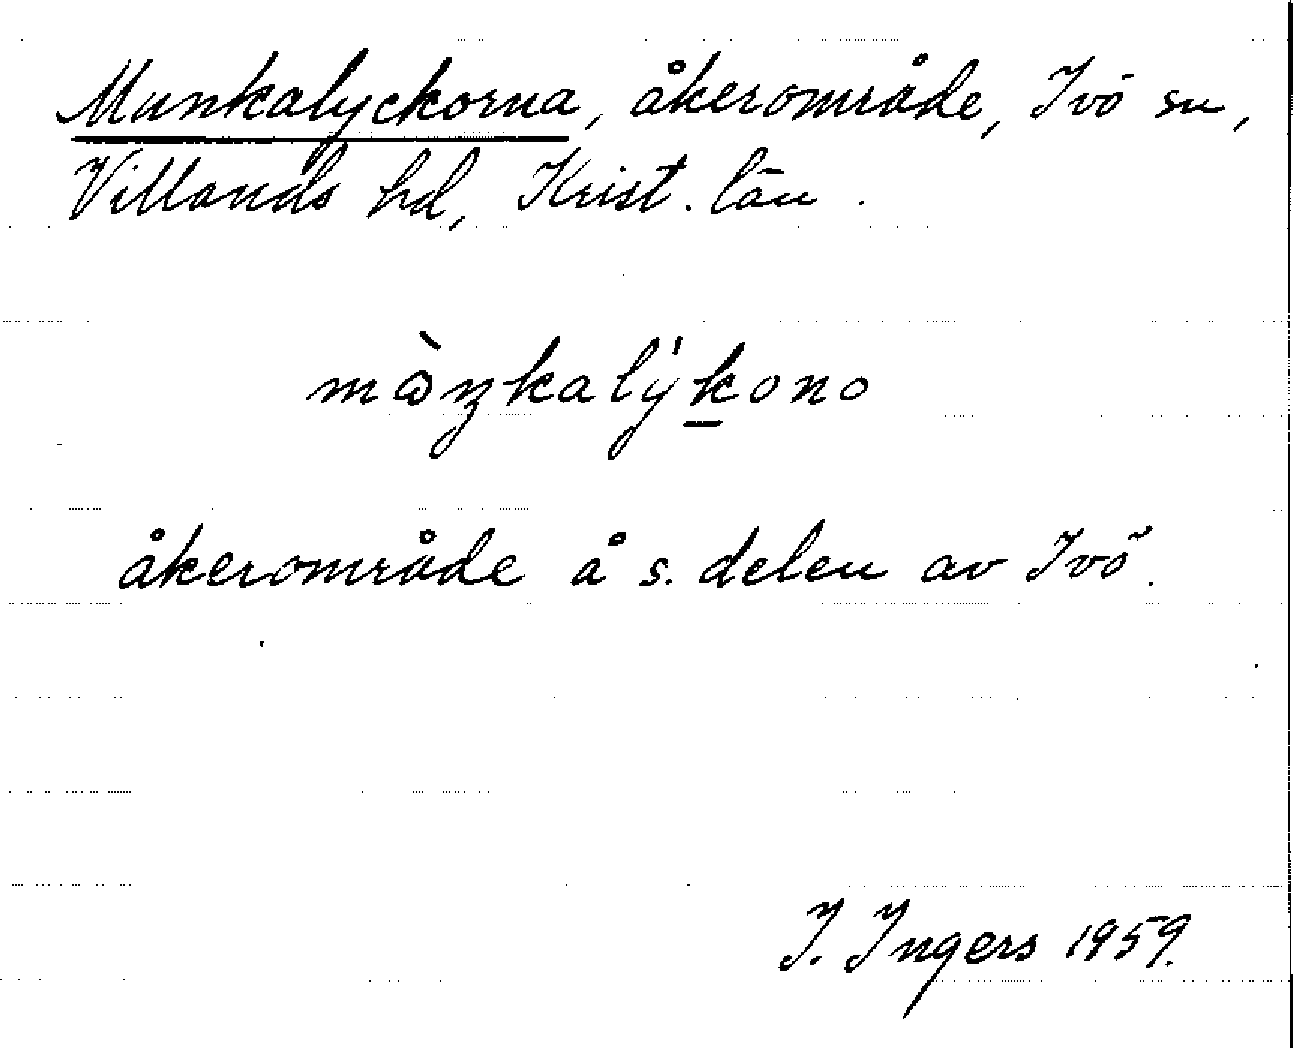 Munkalyckorna, åkerområde, Ivö sn,
Villands hd, Krist. län.
mòŋkalýkono
åkerområde å s. delen av Ivö.
I. Ingers 1959.